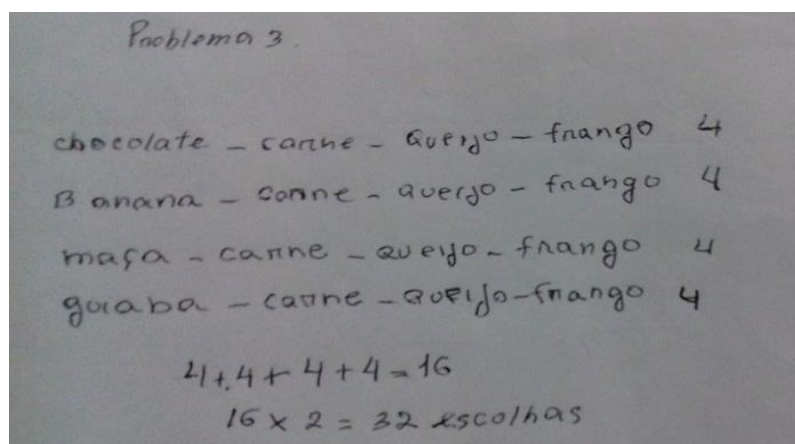 Problema 3.
chocolate - carne - Queijo - frango 4
Banana - carne - queijo - frango 4
maça - carne - queijo - frango 4
goiaba - carne - Queijo - frango 4
4+4+4+4=16
16 x 2 = 32 escolhas